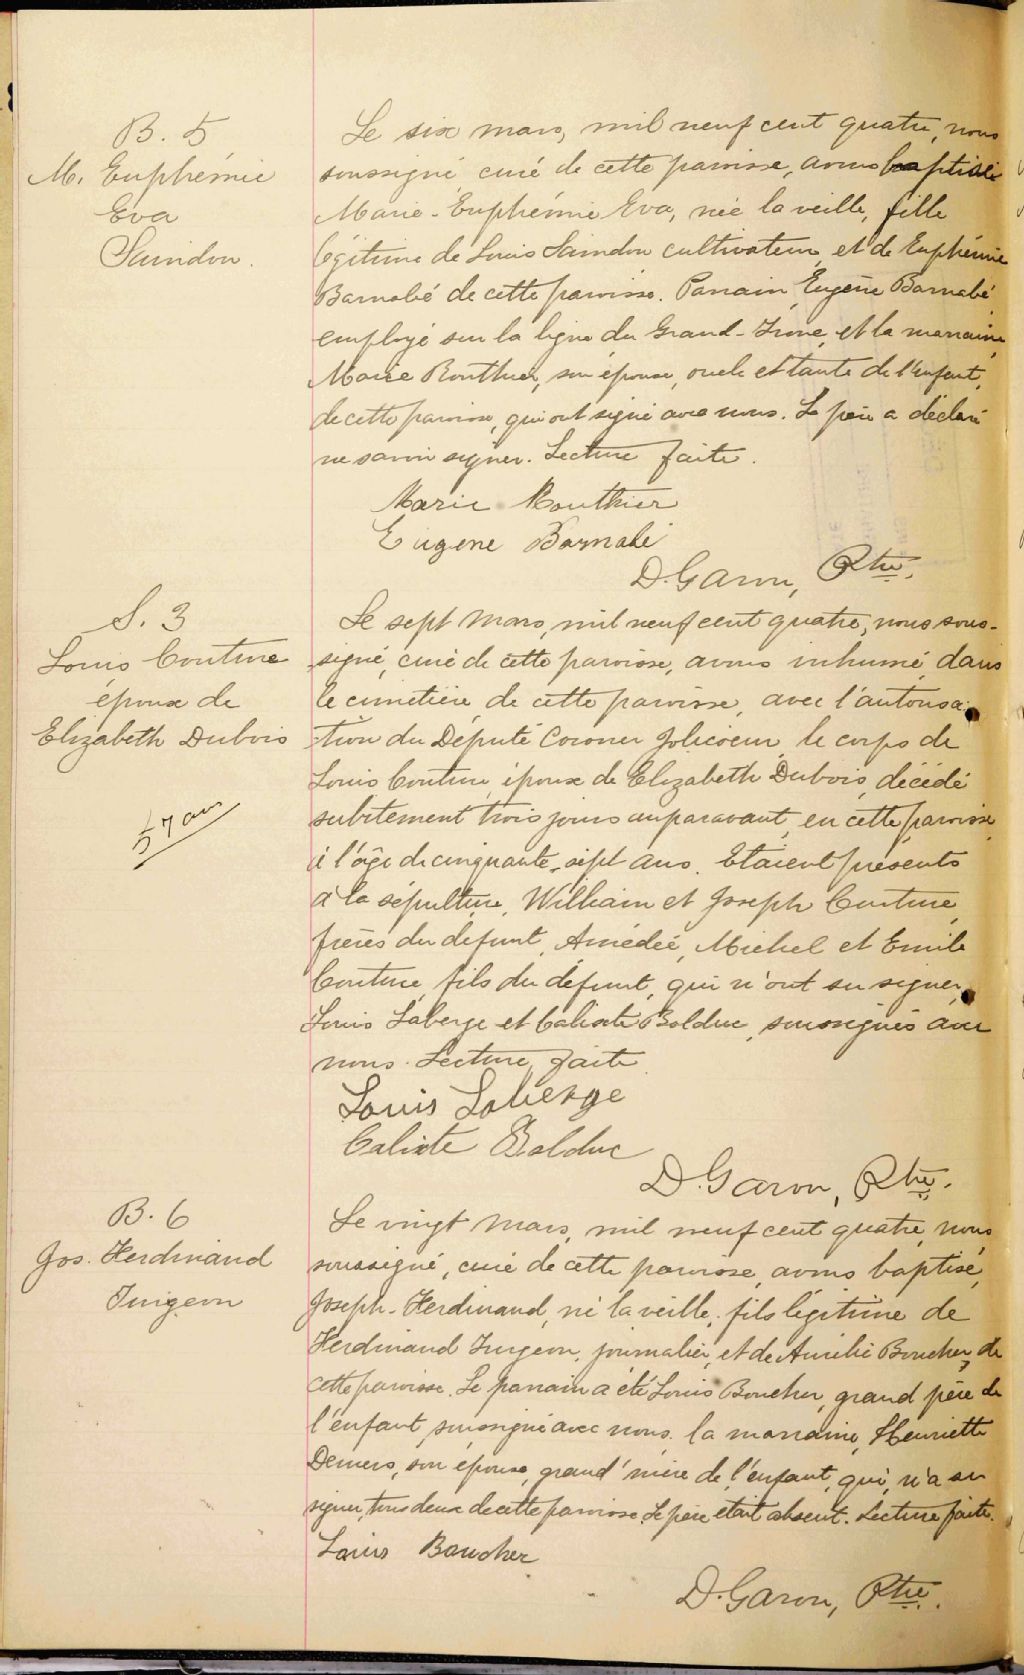 B. 5
M. Euphémie
Eva
Saindon.
Le six mars, mil neuf cent quatre, nous
soussigné, curé de cette paroisse, avons baptisé
Marie-Euphémie Eva, née la veille, fille
légitime de Louis Saindon cultivateur, et de Euphémie
Barnabé de cette paroisse. Parrain Eugène Barnabé
employé sur la ligne du Grand-Tronc, et la marraine,
Marie Routhier, son épouse, oncle et tante de l'enfant,
de cette paroisse, qui ont signé avec nous. Le père a déclaré
ne savoir signer. Lecture faite.
Marie Routhier
Eugene Barnabé
D. Garon, Ptre.
S. 3
Louis Couture
époux de
Elizabeth Dubois
57 ans
Le sept mars, mil neuf cent quatre, nous sous-
signé, curé de cette paroisse, avons inhumé dans
le cimetière de cette paroisse, avec l'autorisa-
tion du Député Coroner Jolicoeur le corps de
Louis Couture, époux de Elizabeth Dubois, décédé
subitement trois jours auparavant, en cette paroisse,
à l'âge de cinquante-sept ans. Etaient présents
à la sépulture, William et Joseph Couture,
frères du défunt, Amédée, Michel et Emile
Couture, fils du défunt, qui n'ont su signer,
Louis Laberge et Calixte Bolduc, soussignés avec
nous. Lecture faite.
Louis Laberge
Calixte Bolduc
D. Garon, Ptre.
B. 6
Jos. Ferdinand
Turgeon
Le vingt mars, mil neuf cent quatre, nous
soussigné, curé de cette paroisse, avons baptisé,
Joseph-Ferdinand, né la veille, fils légitime de
Ferdinand Turgeon, journalier, et de Aurélie Boucher, de
cette paroisse. Le parrain a été Louis Boucher, grand père de
l'enfant, soussigné avec nous. la marraine, Henriette
Demers, son épouse, grand'mère de l'enfant, qui, n'a su
signer, tous deux de cette paroisse. Le père était absent. Lecture faite.
Louis Boucher
D. Garon, Ptre.